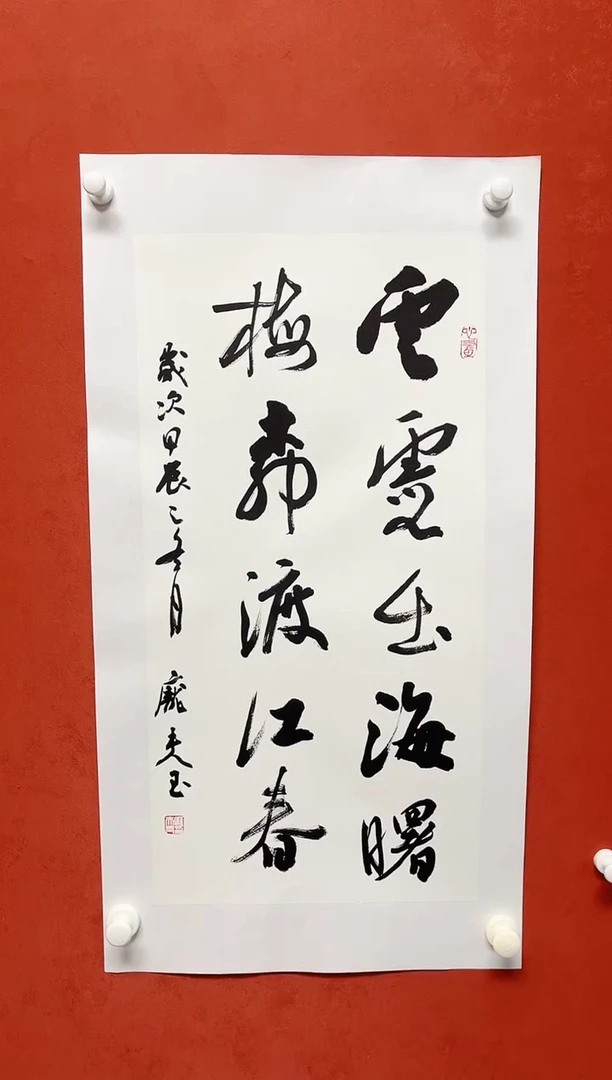 雲霞出海曙
梅柳渡江春
歲次甲辰之冬月 龐玉